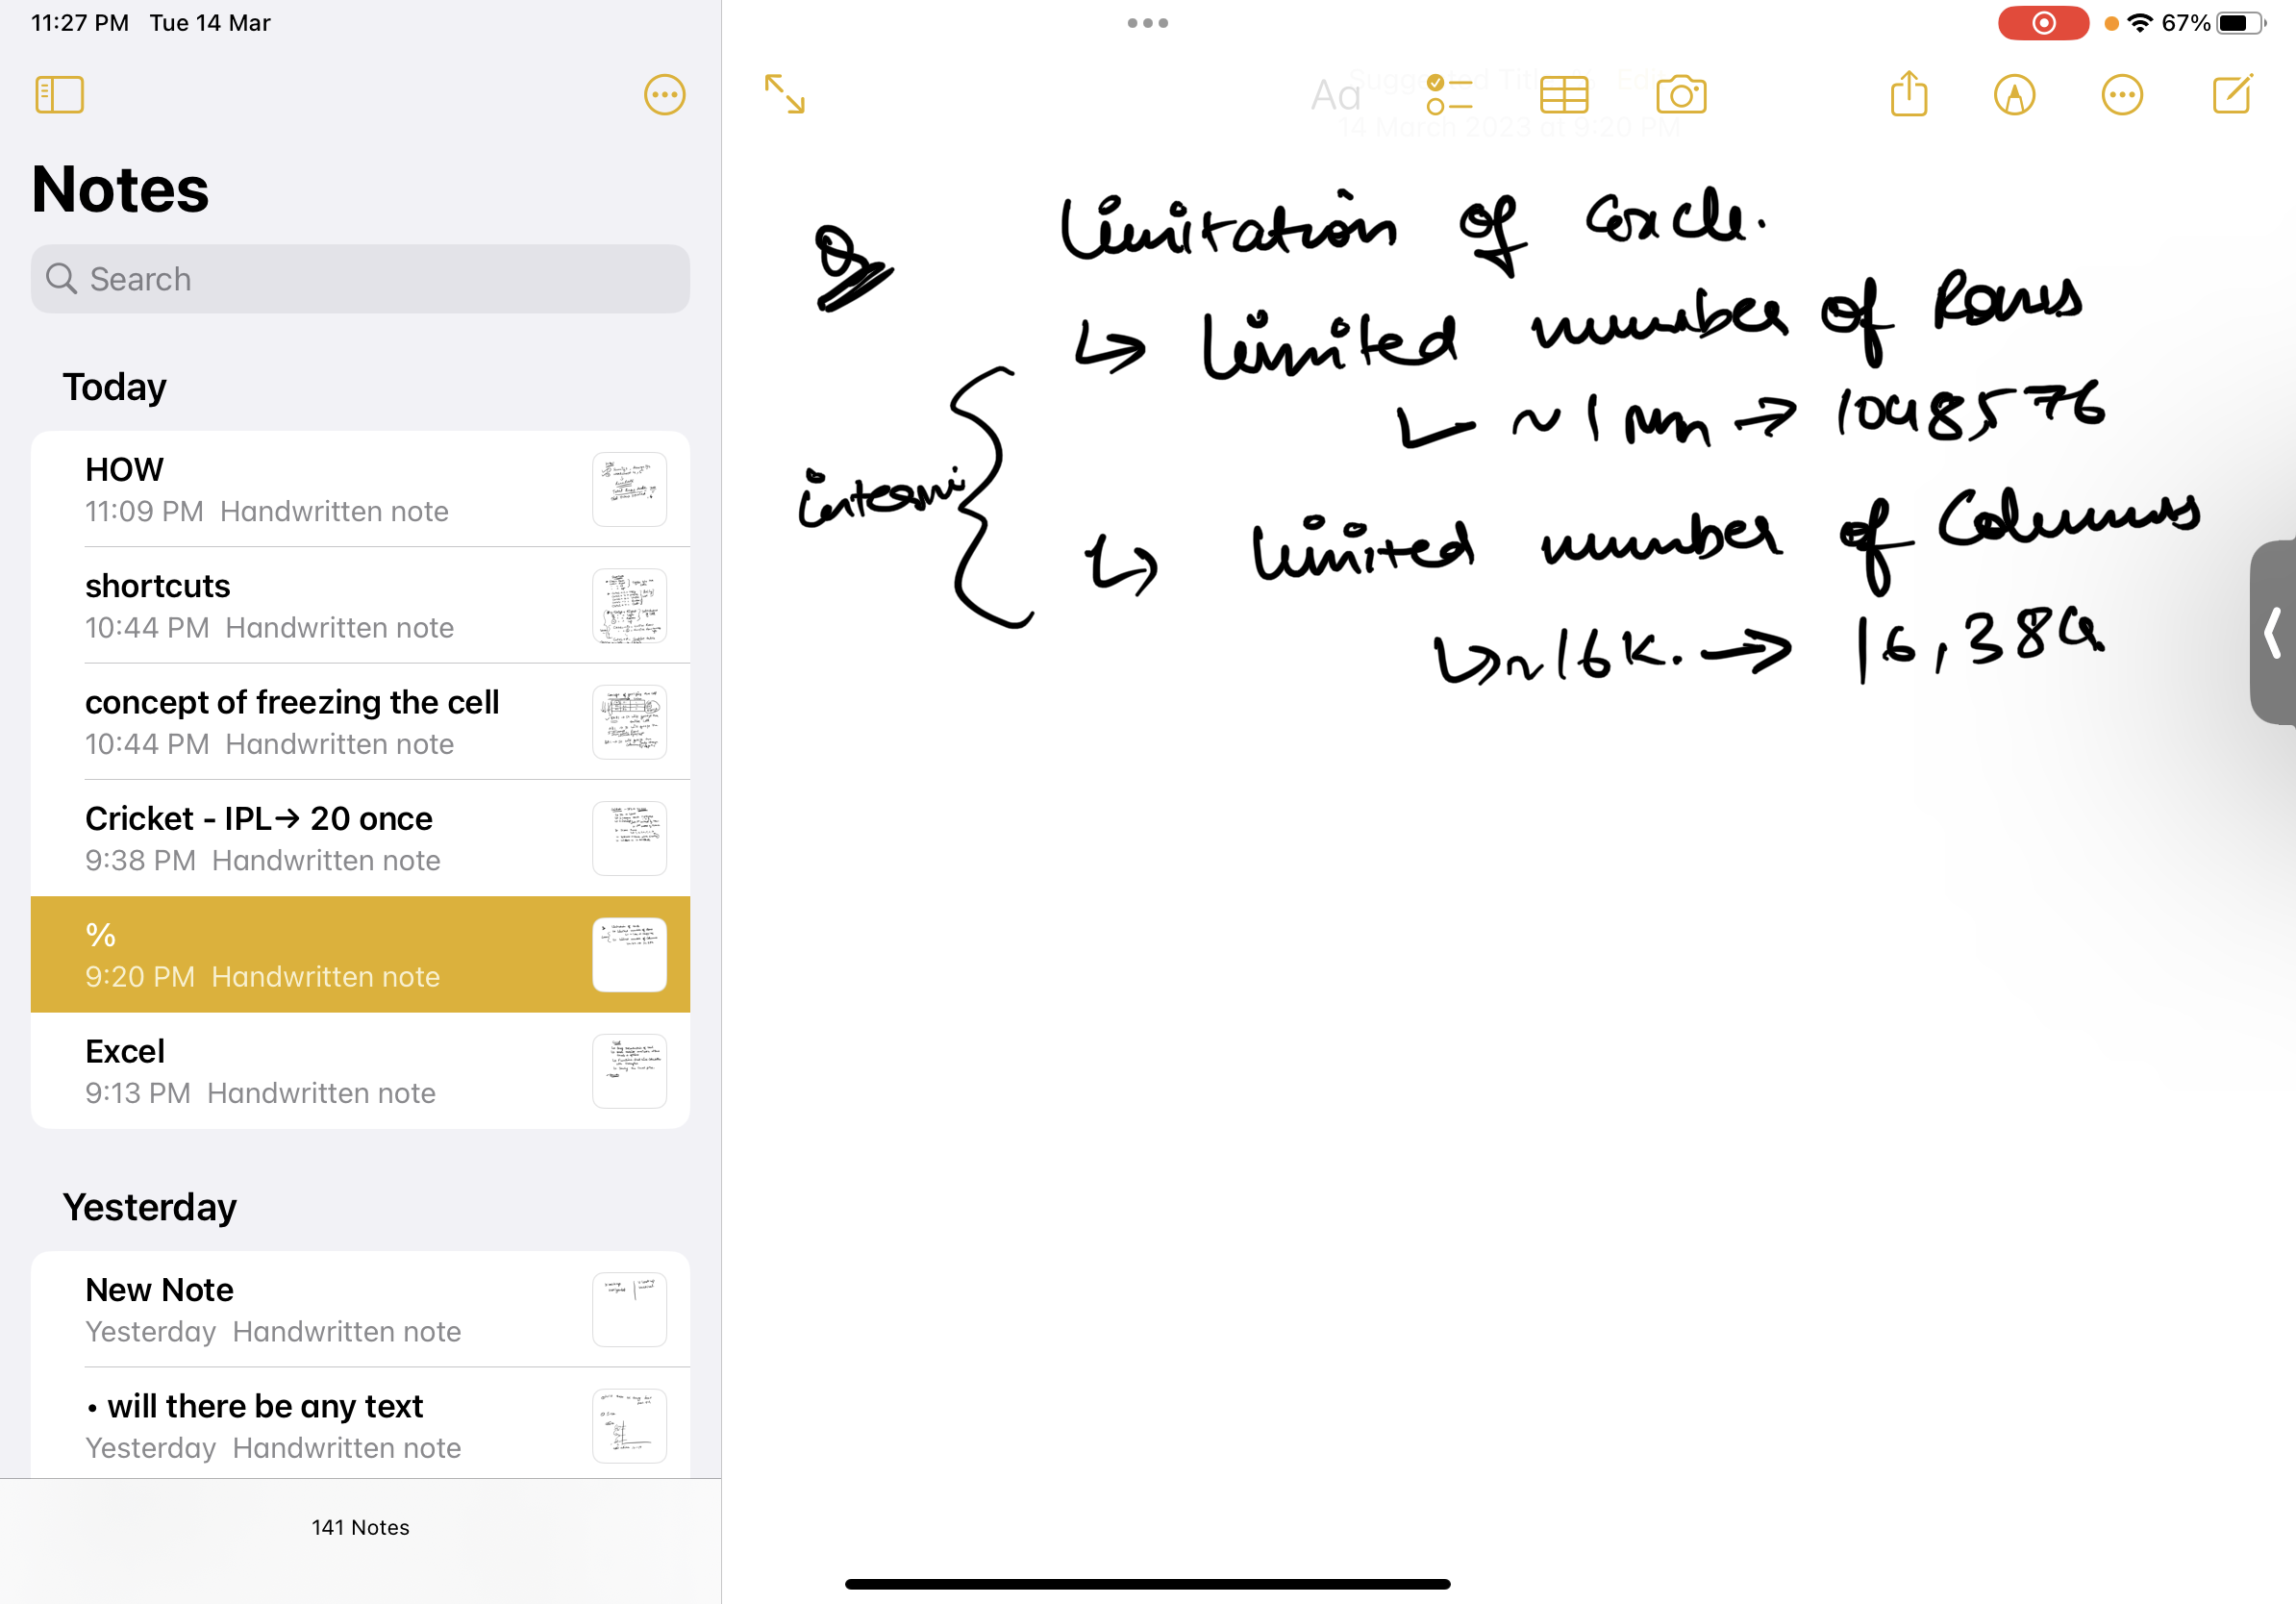 11:27 PM Tue 14 Mar
67%
Notes
Search
Today
HOW
11:09 PM Handwritten note
shortcuts
10:44 PM Handwritten note
concept of freezing the cell
10:44 PM Handwritten note
Cricket - IPL→ 20 once
9:38 PM Handwritten note
%
9:20 PM Handwritten note
Excel
9:13 PM Handwritten note
Yesterday
New Note
Yesterday Handwritten note
• will there be any text
Yesterday Handwritten note
141 Notes
Aa
14 March 2023 at 9:20 PM
Q
Limitation of
↳ Limited number of Rows
~ 1 Mn → 1048576
↳ Limited number of Columns
↳ ~16K. → 16,384